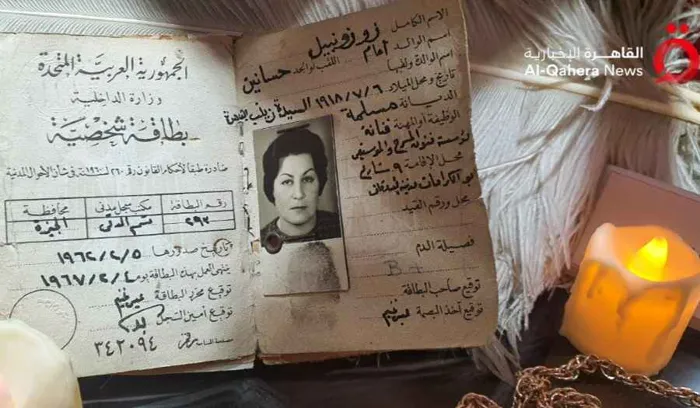 القاهرة الإخبارية
Al-Qahera News
الجمهورية العربية المتحدة
وزارة الداخلية
بطاقة شخصية
صادرة طبقا لأحكام القانون رقم ٢٦٠ لسنة ١٩٦٠ فى شأن الأحوال المدنية
رقم البطاقة
مكتب سجل مدنى
محافظة
٢٩٢
قسم الدقى
الجيزة
تاريخ صدورها ١٩٦٢/٢/٥
ينتهى العمل بهذه البطاقة يوم ١٩٦٧/٢/٤
توقيع محرر البطاقة
توقيع أمين السجل
٣٤٢٠٩٤
الاسم الكامل زوزو نبيل
اسم الوالد إمام اللقب أو الجد حسانين
اسم الوالدة ولقبها
تاريخ ومحل الميلاد ١٩١٨/٧/٦ السيدة زينب بالقاهرة
الديانة مسلمة
الوظيفة أو المهنة فنانة
مؤسسة فنون المسرح والموسيقى
محل الإقامة ٩ شارع
محل ورقم القيد
فصيلة الدم
B+
توقيع صاحب البطاقة
توقيع آخذ البصمة